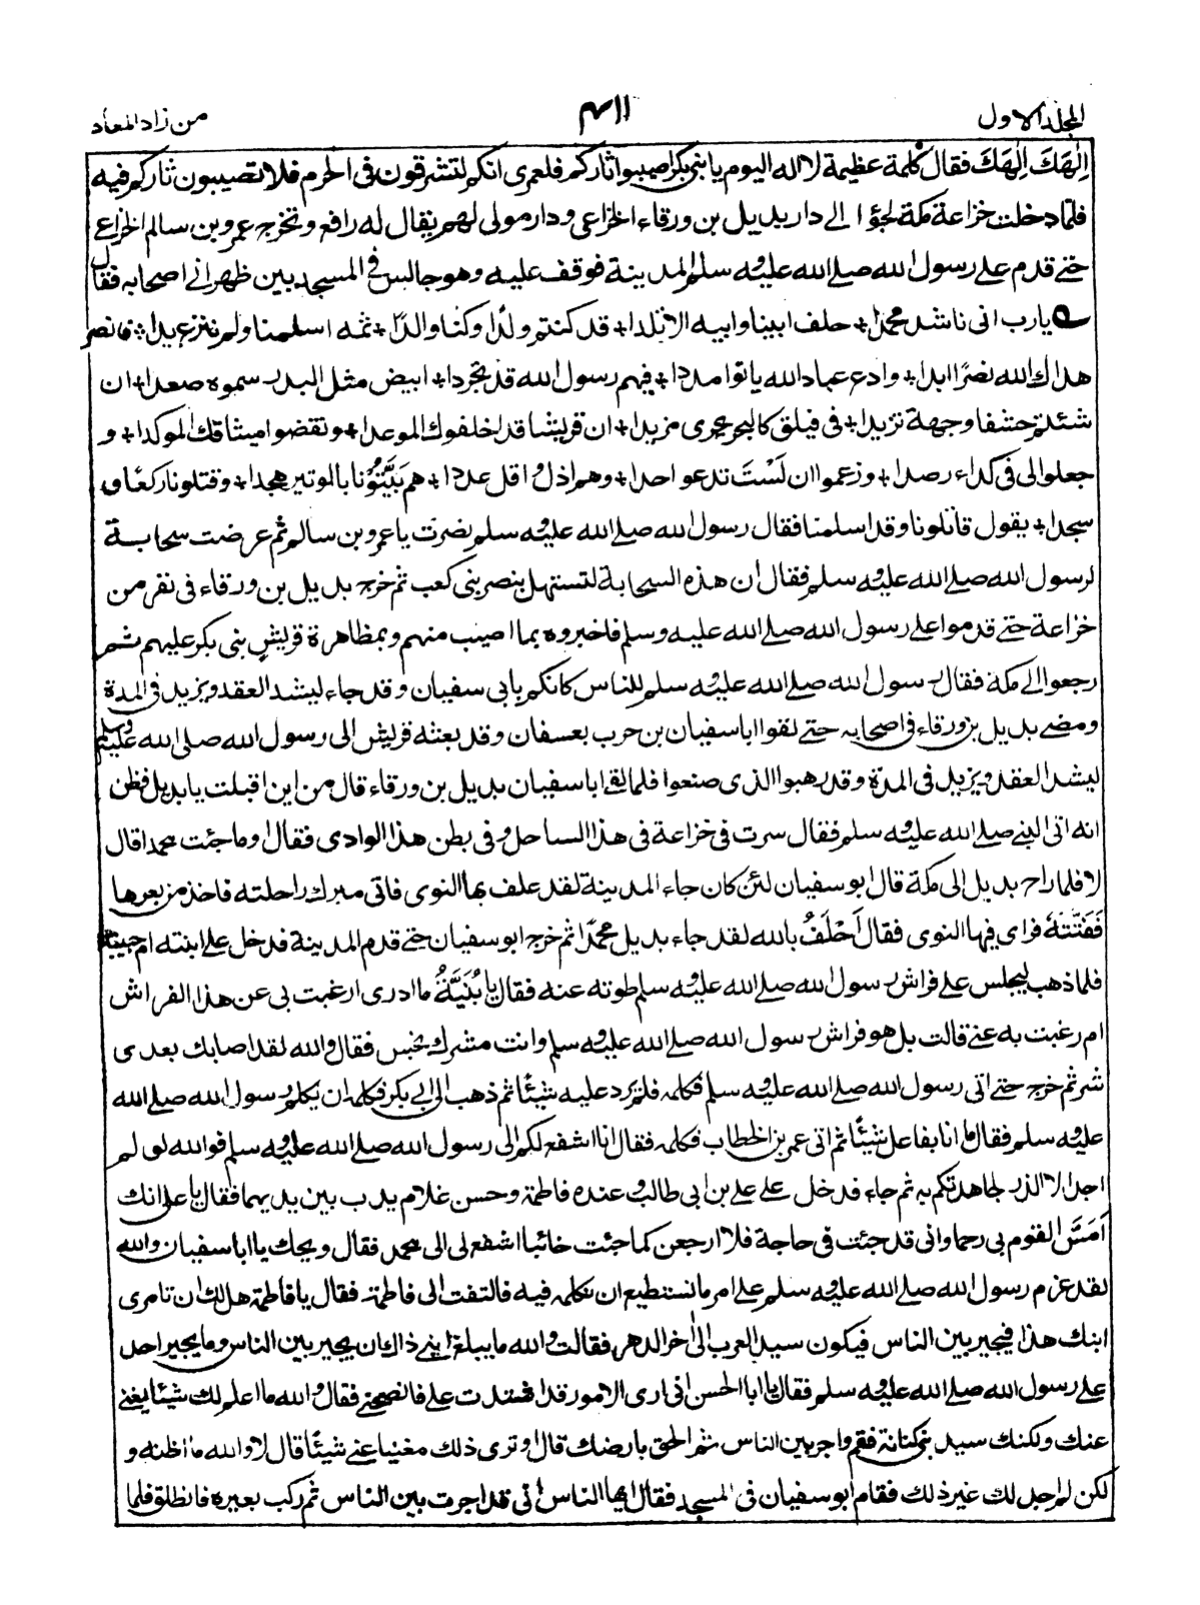 المجلد الاول
٤١١
من زاد المعاد
اِلٰهَكَ اِلٰهَكَ فقال كلمة عظيمة لا اله اليوم يا بنى بكر اصيبوا ثاركم فلعمرى انكم لتشرقون فى الحرم فلا تصيبون ثاركم فيه
فلما دخلت خزاعة مكة لجؤا الى دار بديل بن ورقاء الخزاعى ودار مولى لهم يقال له رافع وتخرج عمرو بن سالم الخزاع
حتے قدم على رسول الله صلے الله عليه وسلم المدينة فوقف عليه وهو جالس فى المسجد بين ظهرانے اصحابه فقال
يارب انى ناشد محمدا + حلف ابينا وابيه الاتلدا + قد كنتم ولدا وكنا والدا + ثمه اسلمنا ولم ننزع يدا + فانصر
هداك الله نصرا ابدا + وادع عباد الله ياتوا مددا + فيهم رسول الله قد تجردا + ابيض مثل البدر سموه صعدا + ان
شئلة حشفا وجهة تزيدا + فى فيلق كالبحر يجرى مزبدا + ان قريشا قد اخلفوك الموعدا + ونقضوا ميثاقك الموكدا + و
جعلوا لى فى كداء رصدا + وزعموا ان لَسْتَ تدعو احدا + وهم اذل واقل عددا + هم بَيَّتُوْنا بالوتير هجدا + وقتلونا ركعا و
سجدا + يقول قاتلونا وقد اسلمنا فقال رسول الله صلے الله عليه وسلم نصرت يا عمرو بن سالم ثم عرضت سحابة
لرسول الله صلے الله عليه وسلم فقال ان هذه السحابة لتستهل بنصر بنى كعب ثم خرج بديل بن ورقاء فى نفر من
خزاعة حتے قدموا على رسول الله صلے الله عليه وسلم فاخبروه بما اصيب منهم وبمظاهرة قريش بنى بكر عليهم ثم
رجعوا الے مكة فقال رسول الله صلے الله عليه وسلم للناس كانكم بابى سفيان وقد جاء ليشد العقد ويزيد فى المدة
ومضے بديل بن ورقاء فى اصحابه حتے لقوا ابا سفيان بن حرب بعسفان وقد بعثته قريش الى رسول الله صلى الله عليه وسلم
ليشد العقد ويزيد فى المدة وقد رهبوا الذى صنعوا فلما لقے ابا سفيان بديل بن ورقاء قال من اين اقبلت يا بديل فظن
انه اتى النبے صلے الله عليه وسلم فقال سرت فى خزاعة فى هذا الساحل وفى بطن هذا الوادى فقال اوما جئت محمدا قال
لا فلما راح بديل الى مكة قال ابو سفيان لئن كان جاء المدينة لقد علف بها النوى فاتى مبرك راحلته فاخذ من بعرها
فَفَتَّتَهٗ فراى فيها النوى فقال اَحْلَفُ بالله لقد جاء بديل محمدا ثم خرج ابو سفيان حتے قدم المدينة فدخل على ابنته ام حبيبة
فلما ذهب ليجلس على فراش رسول الله صلے الله عليه وسلم طوته عنه فقال يا بُنَيَّةُ ما ادرى ارغبت بى عن هذا الفراش
ام رغبت به عنے قالت بل هو فراش رسول الله صلے الله عليه وسلم وانت مشرك نجس فقال والله لقد اصابك بعدى
شر ثم خرج حتے اتى رسول الله صلے الله عليه وسلم فكلمه فلم يرد عليه شيئًا ثم ذهب الى ابى بكر فكلمه ان يكلم رسول الله صلے الله
عليه وسلم فقال ما انا بفاعل شيئًا ثم اتى عمر بن الخطاب فكلمه فقال انا اشفع لكم الى رسول الله صلے الله عليه وسلم فوالله لو لم
اجد الا الذر لجاهدتكم به ثم جاء فدخل على على بن ابى طالب وعنده فاطمة وحسن غلام يدب بين يديهما فقال يا على انك
اَمَسَّ القوم بى رحما وانى قد جئت فى حاجة فلا ارجعن كما جئت خائبا اشفع لى الى محمد فقال ويحك يا ابا سفيان والله
لقد عزم رسول الله صلے الله عليه وسلم على امر ما نستطيع ان نكلمه فيه فالتفت الى فاطمة فقال يا فاطمة هل لك ان تامرى
ابنك هذا فيجير بين الناس فيكون سيد العرب الى اٰخر الدهر فقالت والله ما يبلغ ابنے ذاك ان يجير بين الناس وما يجير احد
على رسول الله صلے الله عليه وسلم فقال يا ابا الحسن انى ارى الامور قد اشتدت على فانصحنے فقال والله ما اعلم لك شيئا يغنے
عنك ولكنك سيد بنى كنانة فقم واجر بين الناس ثم الحق بارضك قال او ترى ذلك مغنيا عنے شيئًا قال لا والله ما اظنه و
لكن لم اجد لك غير ذلك فقام ابو سفيان فى المسجد فقال ايها الناس انى قد اجرت بين الناس ثم ركب بعيره فانطلق فلما